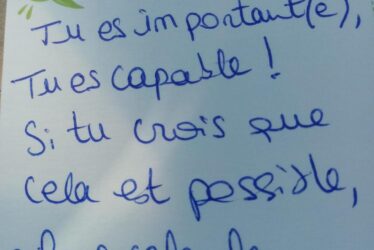 Tu es important(e),
Tu es capable !
Si tu crois que
cela est possible,